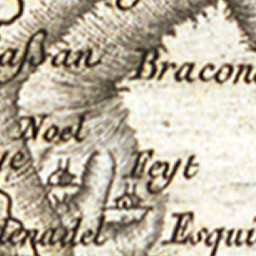 aſsan
Bracon
Noel
ye
Feyt
denadel
Esqui